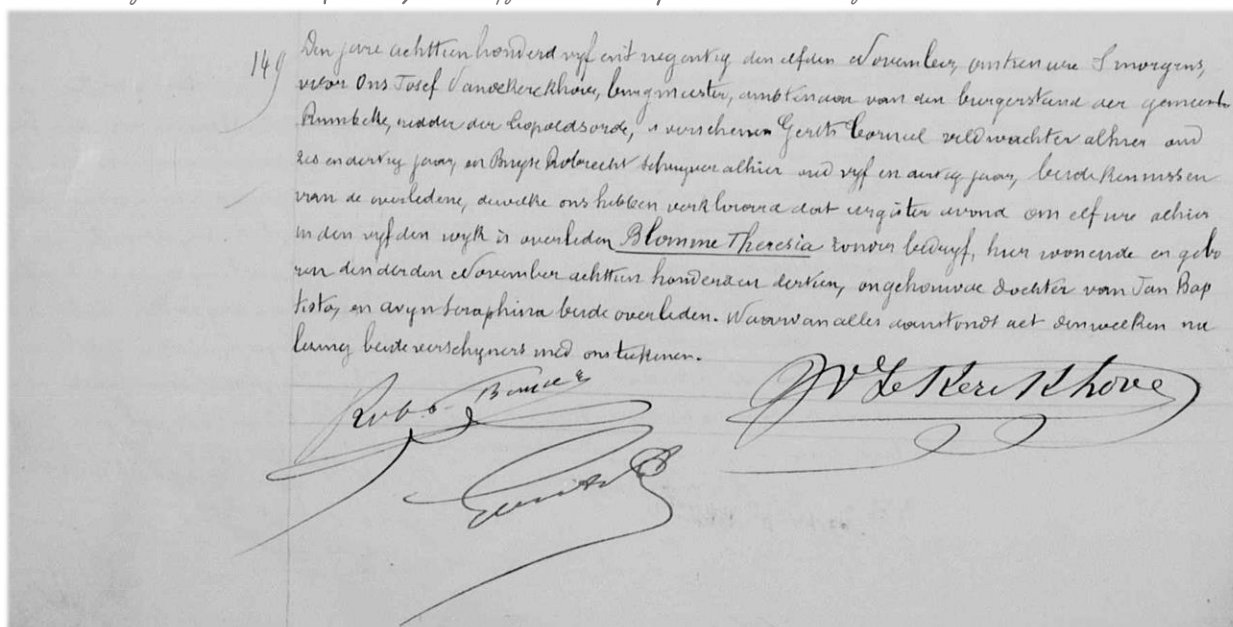 149
Den jare achttien honderd vyf en't negentig den elfden November, om tien ure 's morgens,
voor Ons Josef Vandekerckhove, burgmeester, ambtenaar van den burgerstand der gemeente
Rumbeke, ridder der Leopoldsorde, is verschenen Gerits Corneel veldwachter alhier oud
zes en dertig jaar, en Buyse Robrecht schryver alhier oud vyf en dertig jaar, beide kennissen
van de overledene, dewelke ons hebben verklaard dat eergister avond om elf ure alhier
in den vyfden wyk is overleden Blomme Theresia zonder bedryf, hier wonende en gebo
ren den derden November achttien honderd en dertien, ongehuwde dochter van Jan Bap
tista, en Seraphina beide overleden. Waarvan alles aanstonds act denwelken na
lezing beide verschyners med ons teekenen.
J VdeKerckhove